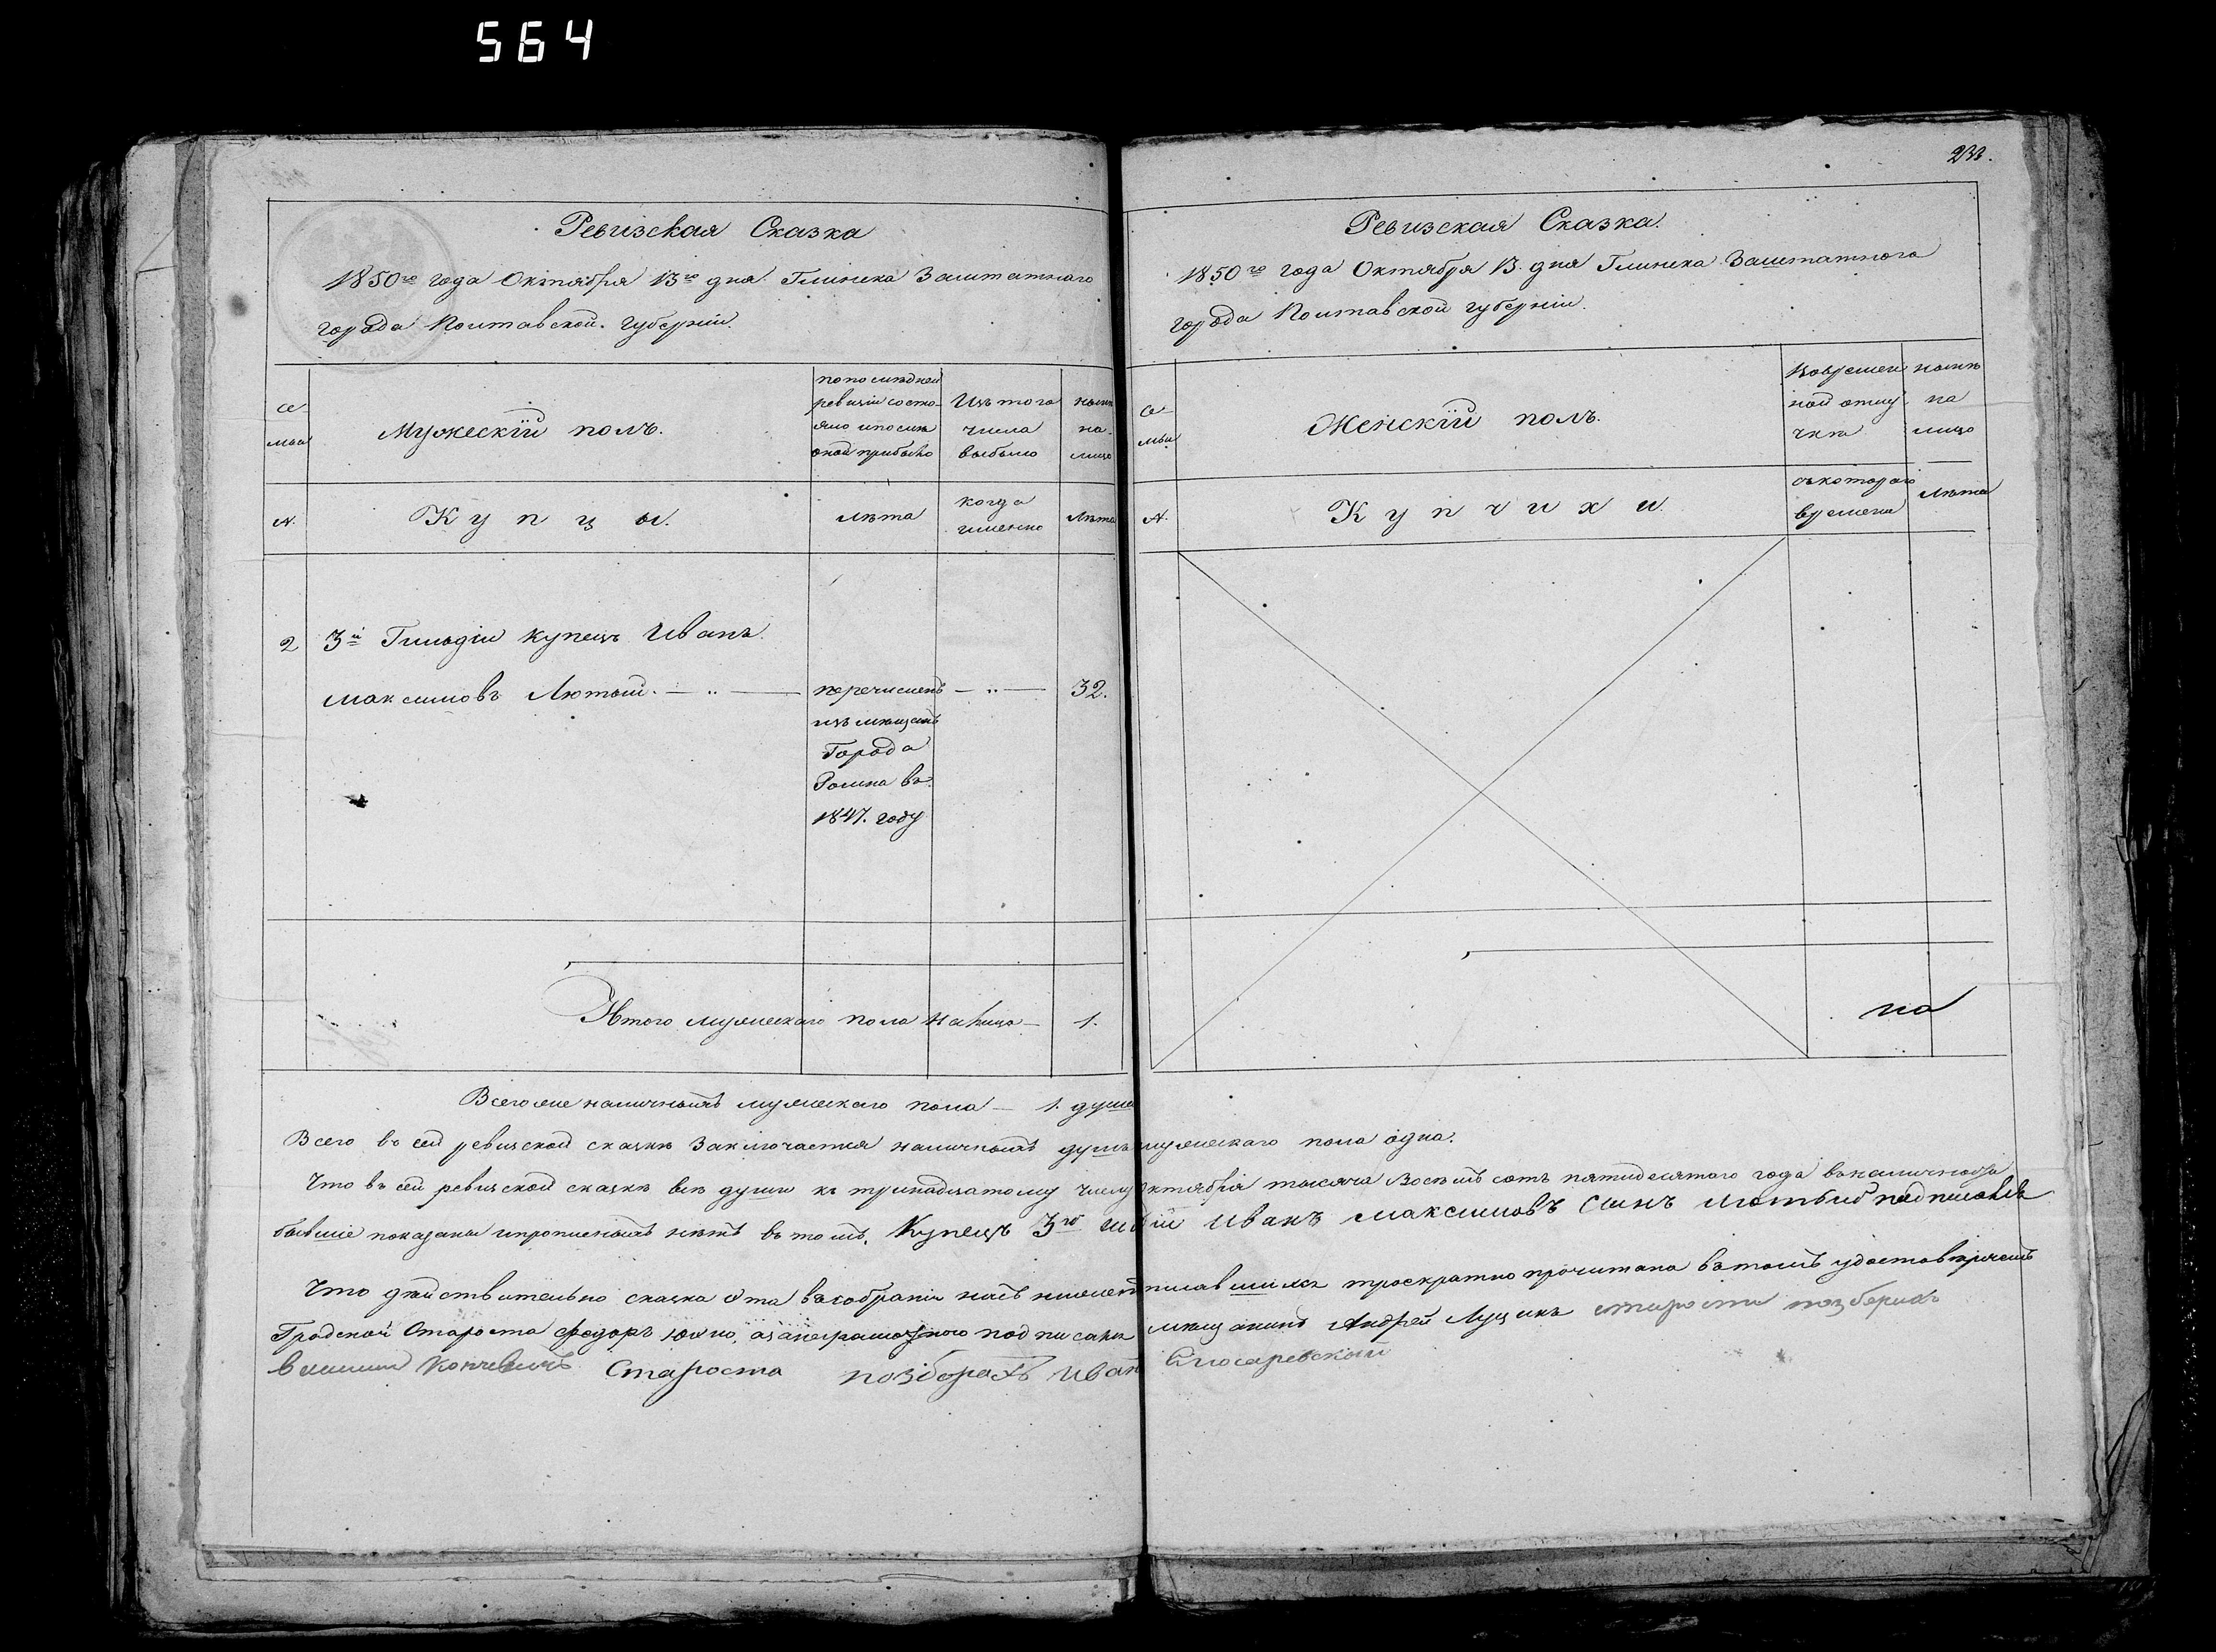 564
233.
Ревизская Сказка
1850го года Октября 13го дня Глинска Заштатнаго
города Полтавской губерніи.
се-
мьи
Мужескій полъ.
по последней
ревизіи состо-
яло и после
оной прибыло
Изъ того
числа
выбыло
ныне
на
лицо
№.
Купцы.
лѣта
когда
именно
Лѣта
2
3й Гильдіи купецъ Иванъ
Максимовъ Лютый. — „ —
перечисленъ — „ — 32.
изъ мещанъ
Города
Ромна въ
1847. году
Итого мужескаго пола налицо — 1.
Ревизская Сказка.
1850го года Октября 13. дня Глинска Заштатного
города Полтавской губерніи.
се-
мьи
Женскій полъ.
Во времен
ной отлу
чке
ныне
на
лицо
№.
Купчихи.
съ котораго
времени
Лѣта
Всего же наличныхъ мужескаго пола — 1. душа
Всего въ сей ревизской сказке заключается наличныхъ душъ мужескаго пола одна.
Что въ сей ревизской сказкѣ все души къ тринадцатому числу Октября тысяча восемь сотъ пятидесятого года въ наличности
бывшіе показаны и прописныхъ нѣтъ въ томъ, Купецъ 3го Иванъ Максимовъ Синъ Лютый подписался
Что действительно сказка эта въ собраніи насъ нижеподписавшихся троекратно прочитана въ томъ удостоверяемъ
Градской Староста Федоръ а за неграмотного подписался мещанинъ Андрей Луцикъ старости
Староста Иван Слюсаревский